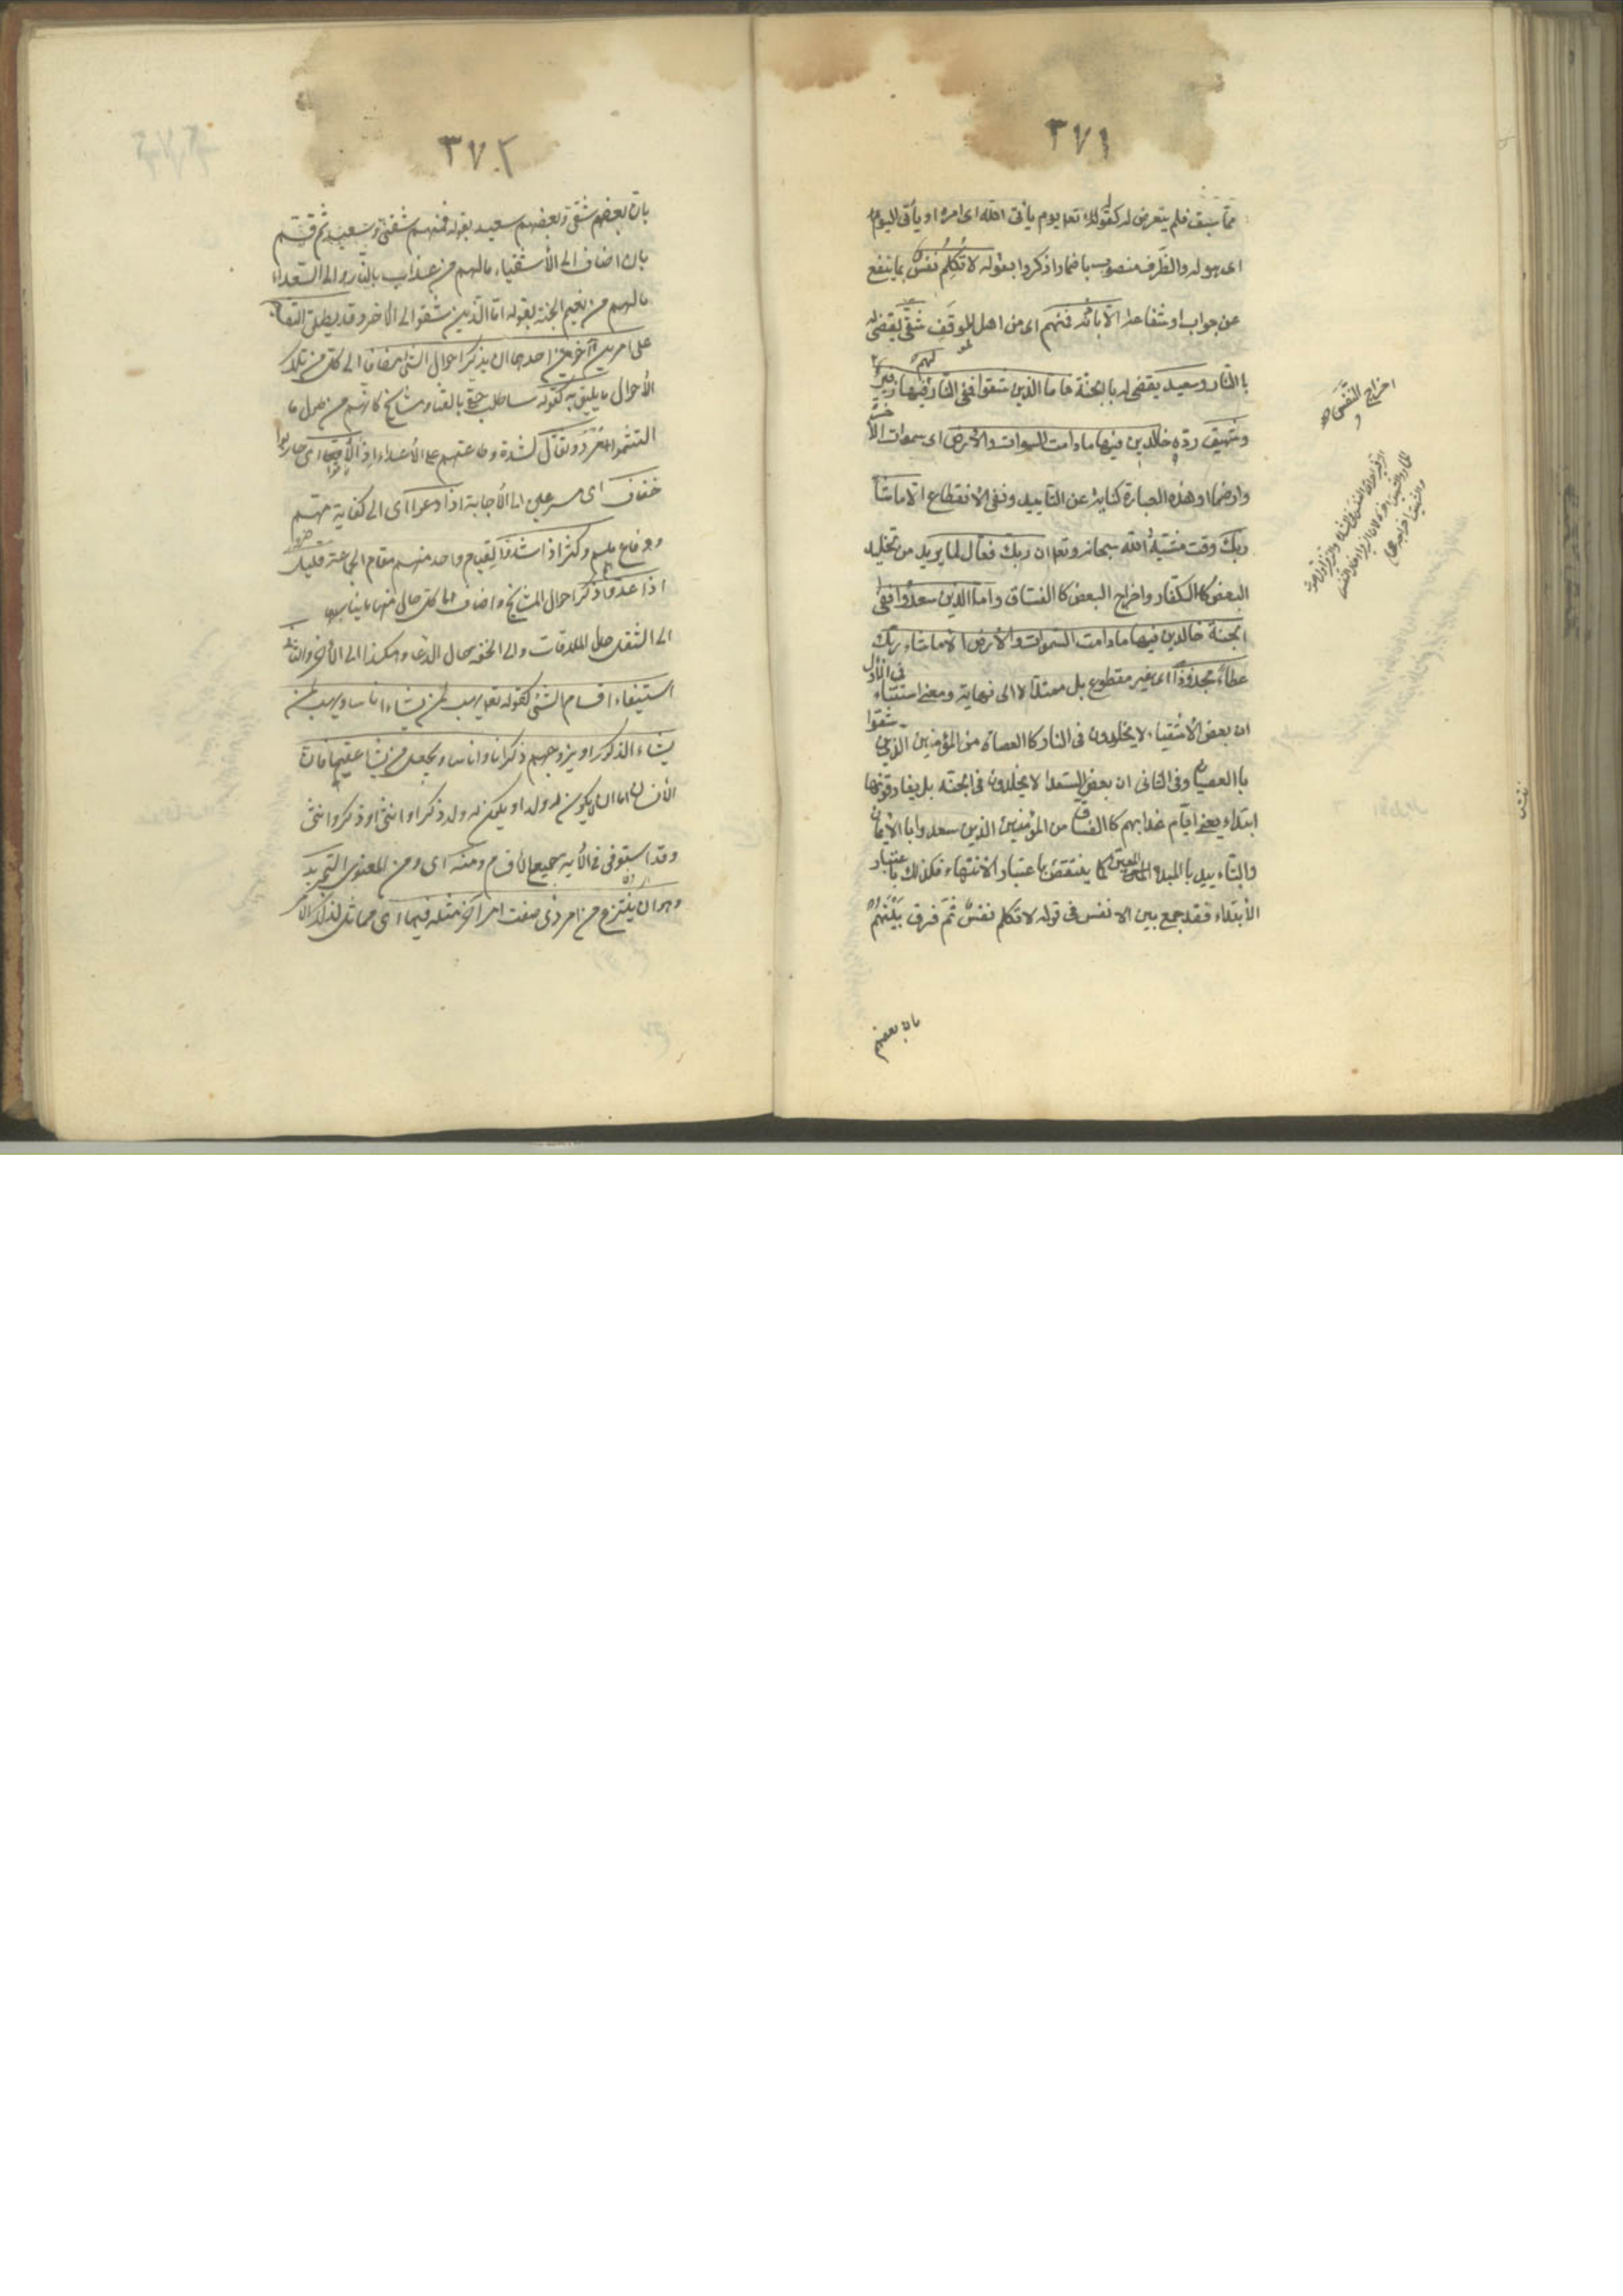 ٣٧١
مما سبق فلم يتعرض له كقوله تعا يوم يأتى الله اى امره او يأتى اليوم
اى هوله والظرف منصوب باضمار اذكر وا بقوله لا تكلم نفس بما ينفع
عن جواب او شفاعة الا باذنه فمنهم اى من اهل الموقف شقى يقضى له
باالنار وسعيد يقضى له باالجنة فاما الذين شقوا ففى النار لهم فيها زفير
وشهيق رده خالدين فيها مادامت السموات والأرض اى سموات الآخرة
وارضها او هذه العبارة كناية عن التاييد ونفى الانقطاع الا ماشآ
ربك وقت مشية الله سبحانه وتعا ان ربك فعال لما يريد من تخليد
البعض كاالكفار واخراج البعض كاالفساق واما الذين سعدوا ففى
الجنة خالدين فيها مادامت السموات والأرض الا ماشاء ربك
عطاء مجذوذا اى غير مقطوع بل ممتدا لا الى نهاية ومعنى استثناء فى الأول
ان بعض الأشقياء لا يخلدون فى النار كاالعصاة من المؤمنين الذين شقوا
باالعصيان وفى الثانى ان بعض السعدا لا يخلدون فى الجنة بل يفارقونها
ابتداء يعنى ايام عذابهم كاالفساق من المؤمنين الذين سعدوا باالأيمان
والتاءييد باالمبدو المعين كما ينتقض باعتبار الانتهاء فكذلك باعتبار
الأبتداء فقد جمع بين الانفس فى قوله لا تكلم نفس ثم فرق بينهم
بان بعضهم
اخراج النفس
٣٧٢
بان بعضهم شقى وبعضهم سعيد بقوله فمنهم شقى وسعيد ثم قسم
بان اضاف الى الأشقياء مالهم من عذاب بالنار والى السعداء
مالهم من نعيم الجنة بقوله اما الذين شقوا الى الاخر وقد يطلق التقسيم
على امرين آخرين احدهما ان يذكر احوال الشئ مضافا الى كل من تلك
الأحوال ما يليق به كقوله ساطلب حقى بالقنا ومشايخ كانهم من طول ما
التثموا مرد وثقال لشدة وطاءتهم على الأعداء اذا لاقوا اى حاربوا
خفاف اى مسرعين الى الأجابة اذا دعوا اى الى كفاية مهم
ودفاع ملم وكثر اذا شدوا لقيام واحد منهم مقام الجماعة قليل
اذا عدوا ذكر احوال المشايخ واضاف الى كل حال منها ما يناسبها
الى الثقل حال الملاقات والى الخفة حال الدعا وهكذا الى الأخر والثانى
استيفاء اقسام الشئ كقوله تعا يهب لمن يشاء اناثا ويهب لمن
يشاء الذكور او يزوجهم ذكرانا واناثا ويجعل من يشا عقيما فان
الأنسان اما ان لا يكون له ولد او يكون له ولد ذكر او انثى او ذكر وانثى
وقد استوفى فى الأية جميع الأقسام ومنه اى ومن المعنوى التجريد
وهو ان ينتزع من امر ذى صفت امر اخر مثله فيها اى مماثل لذلك الأمر